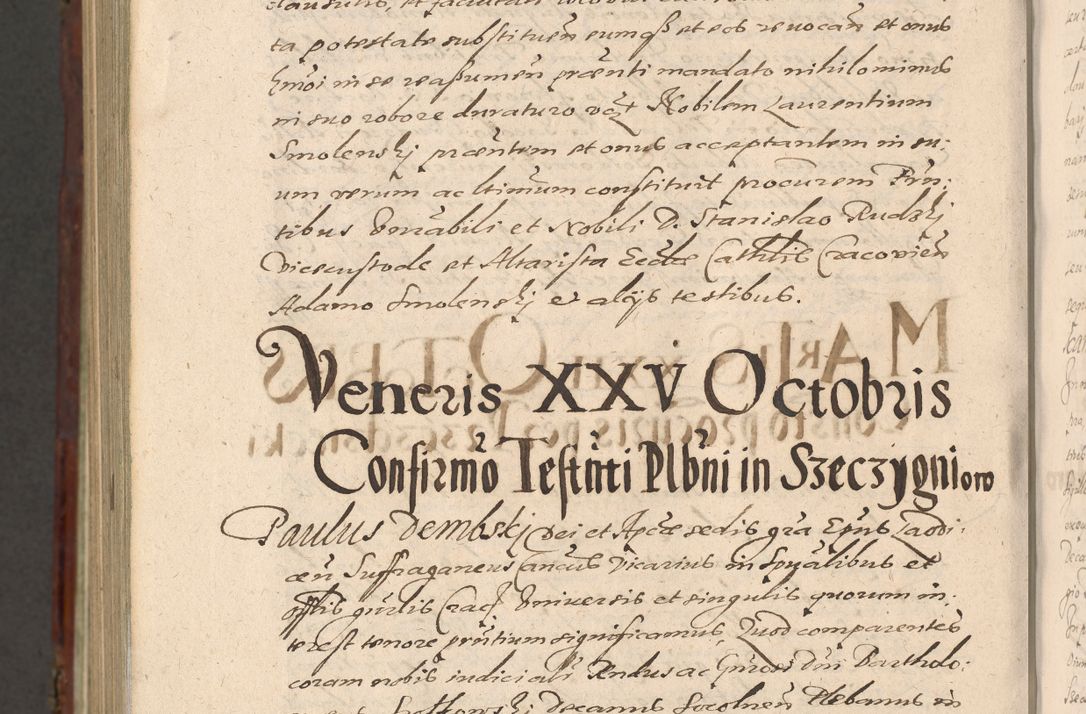 clausulis, et facultati
ta potestate substituen eumqz et eos revocan et onus
hmoi in se reassumen prænti mandato nihilominus
in suo robore duraturo vocz Nobilem Laurentium
Smolenskj præntem et onus acceptantem in su:
um verum ac ltimum constituit procurem Prn:
tibus Vnrabili et Nobili D. Stanislao Rudzkj
Vicecustode et Altarista Eccliæ Cathlis Cracovien
Adamo Smolenskj et alijs testibus.
Veneris XXV Octobris
Confirmo Testnti Plbni in Szeczygnioro
Paulus Dembskj Dei et Apcæ sedis gra Epus Laodi:
cæn Suffraganeus Cancus Vicarius in spualibus et
offlis gnrlis Crac. Vniversis et singulis quorum in:
terest tenore prntium significamus, Quod comparentes
coram nobis iudiciali Rndus ac Gnrosi Dni Bartholo:
Decanus Socolnen Plebanus in